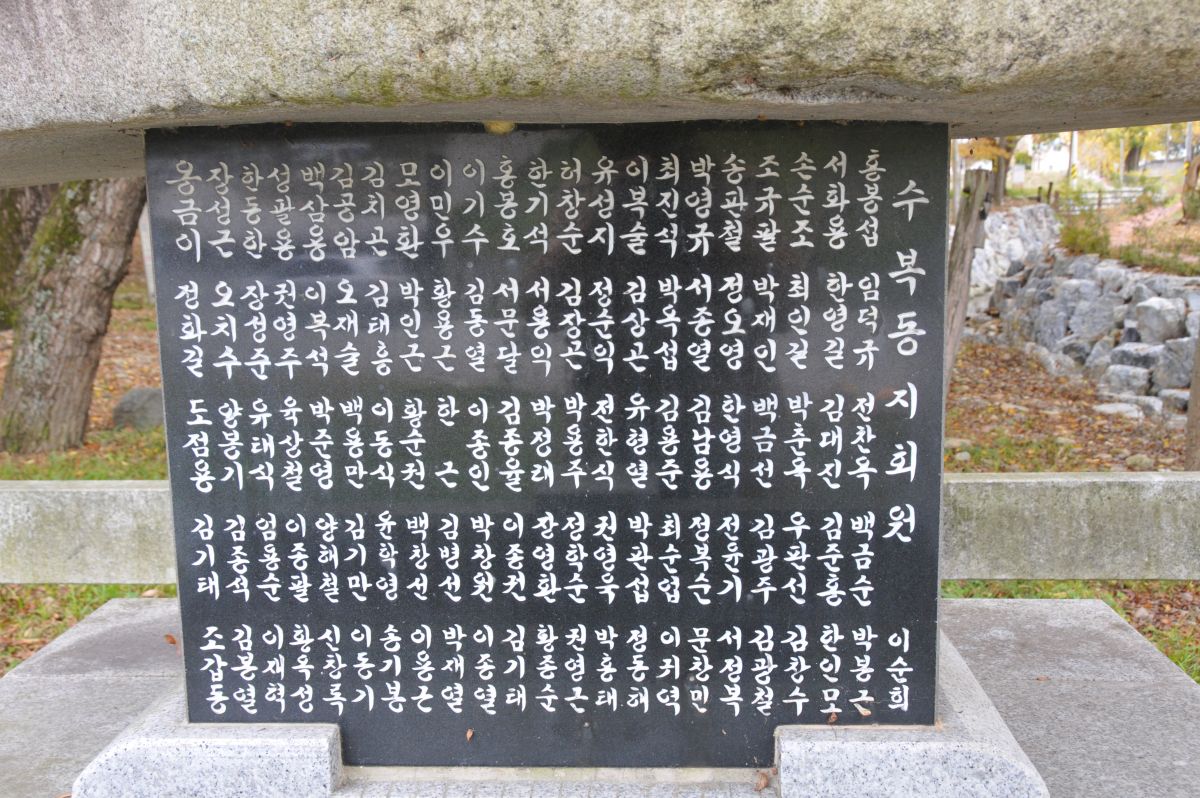 수복동지회원
홍봉섭 서화용 손순조 조규팔 송판철 박영규 최진석 이복술 유성지 허창순 한기석 홍봉호 이기수 이민우 모영환 김치곤 김공암 백삼용 성팔용 한동한 장설근 옹금이
임덕규 한영길 최인길 박재인 정오영 서종열 박옥섭 김상곤 정순익 김장곤 서용익 서문달 김동열 황용근 박인근 김태흥 오재술 이복석 권영주 장성준 오치수 전화길
전찬옥 김대진 박춘목 백금선 한영식 김남용 김용준 유형열 전한식 박용주 박정태 김종율 이종인 한근 황순권 이동식 백용만 박준영 육상철 유태식 양봉기 도점용
백금순 김준홍 우판선 김광주 전윤기 정복순 최순업 박판섭 권영욱 정학순 장영환 이종권 박창원 김병선 백창선 윤학영 김기만 양해철 이종팔 엄동순 김종석 김기태
이순희 박봉근 한인모 김창수 김광철 서정복 문창민 이귀역 정동해 박홍태 권영근 황종순 김기태 이종열 박재열 이용근 송기봉 이동기 신창록 황옥성 이재혁 김봉열 조갑동